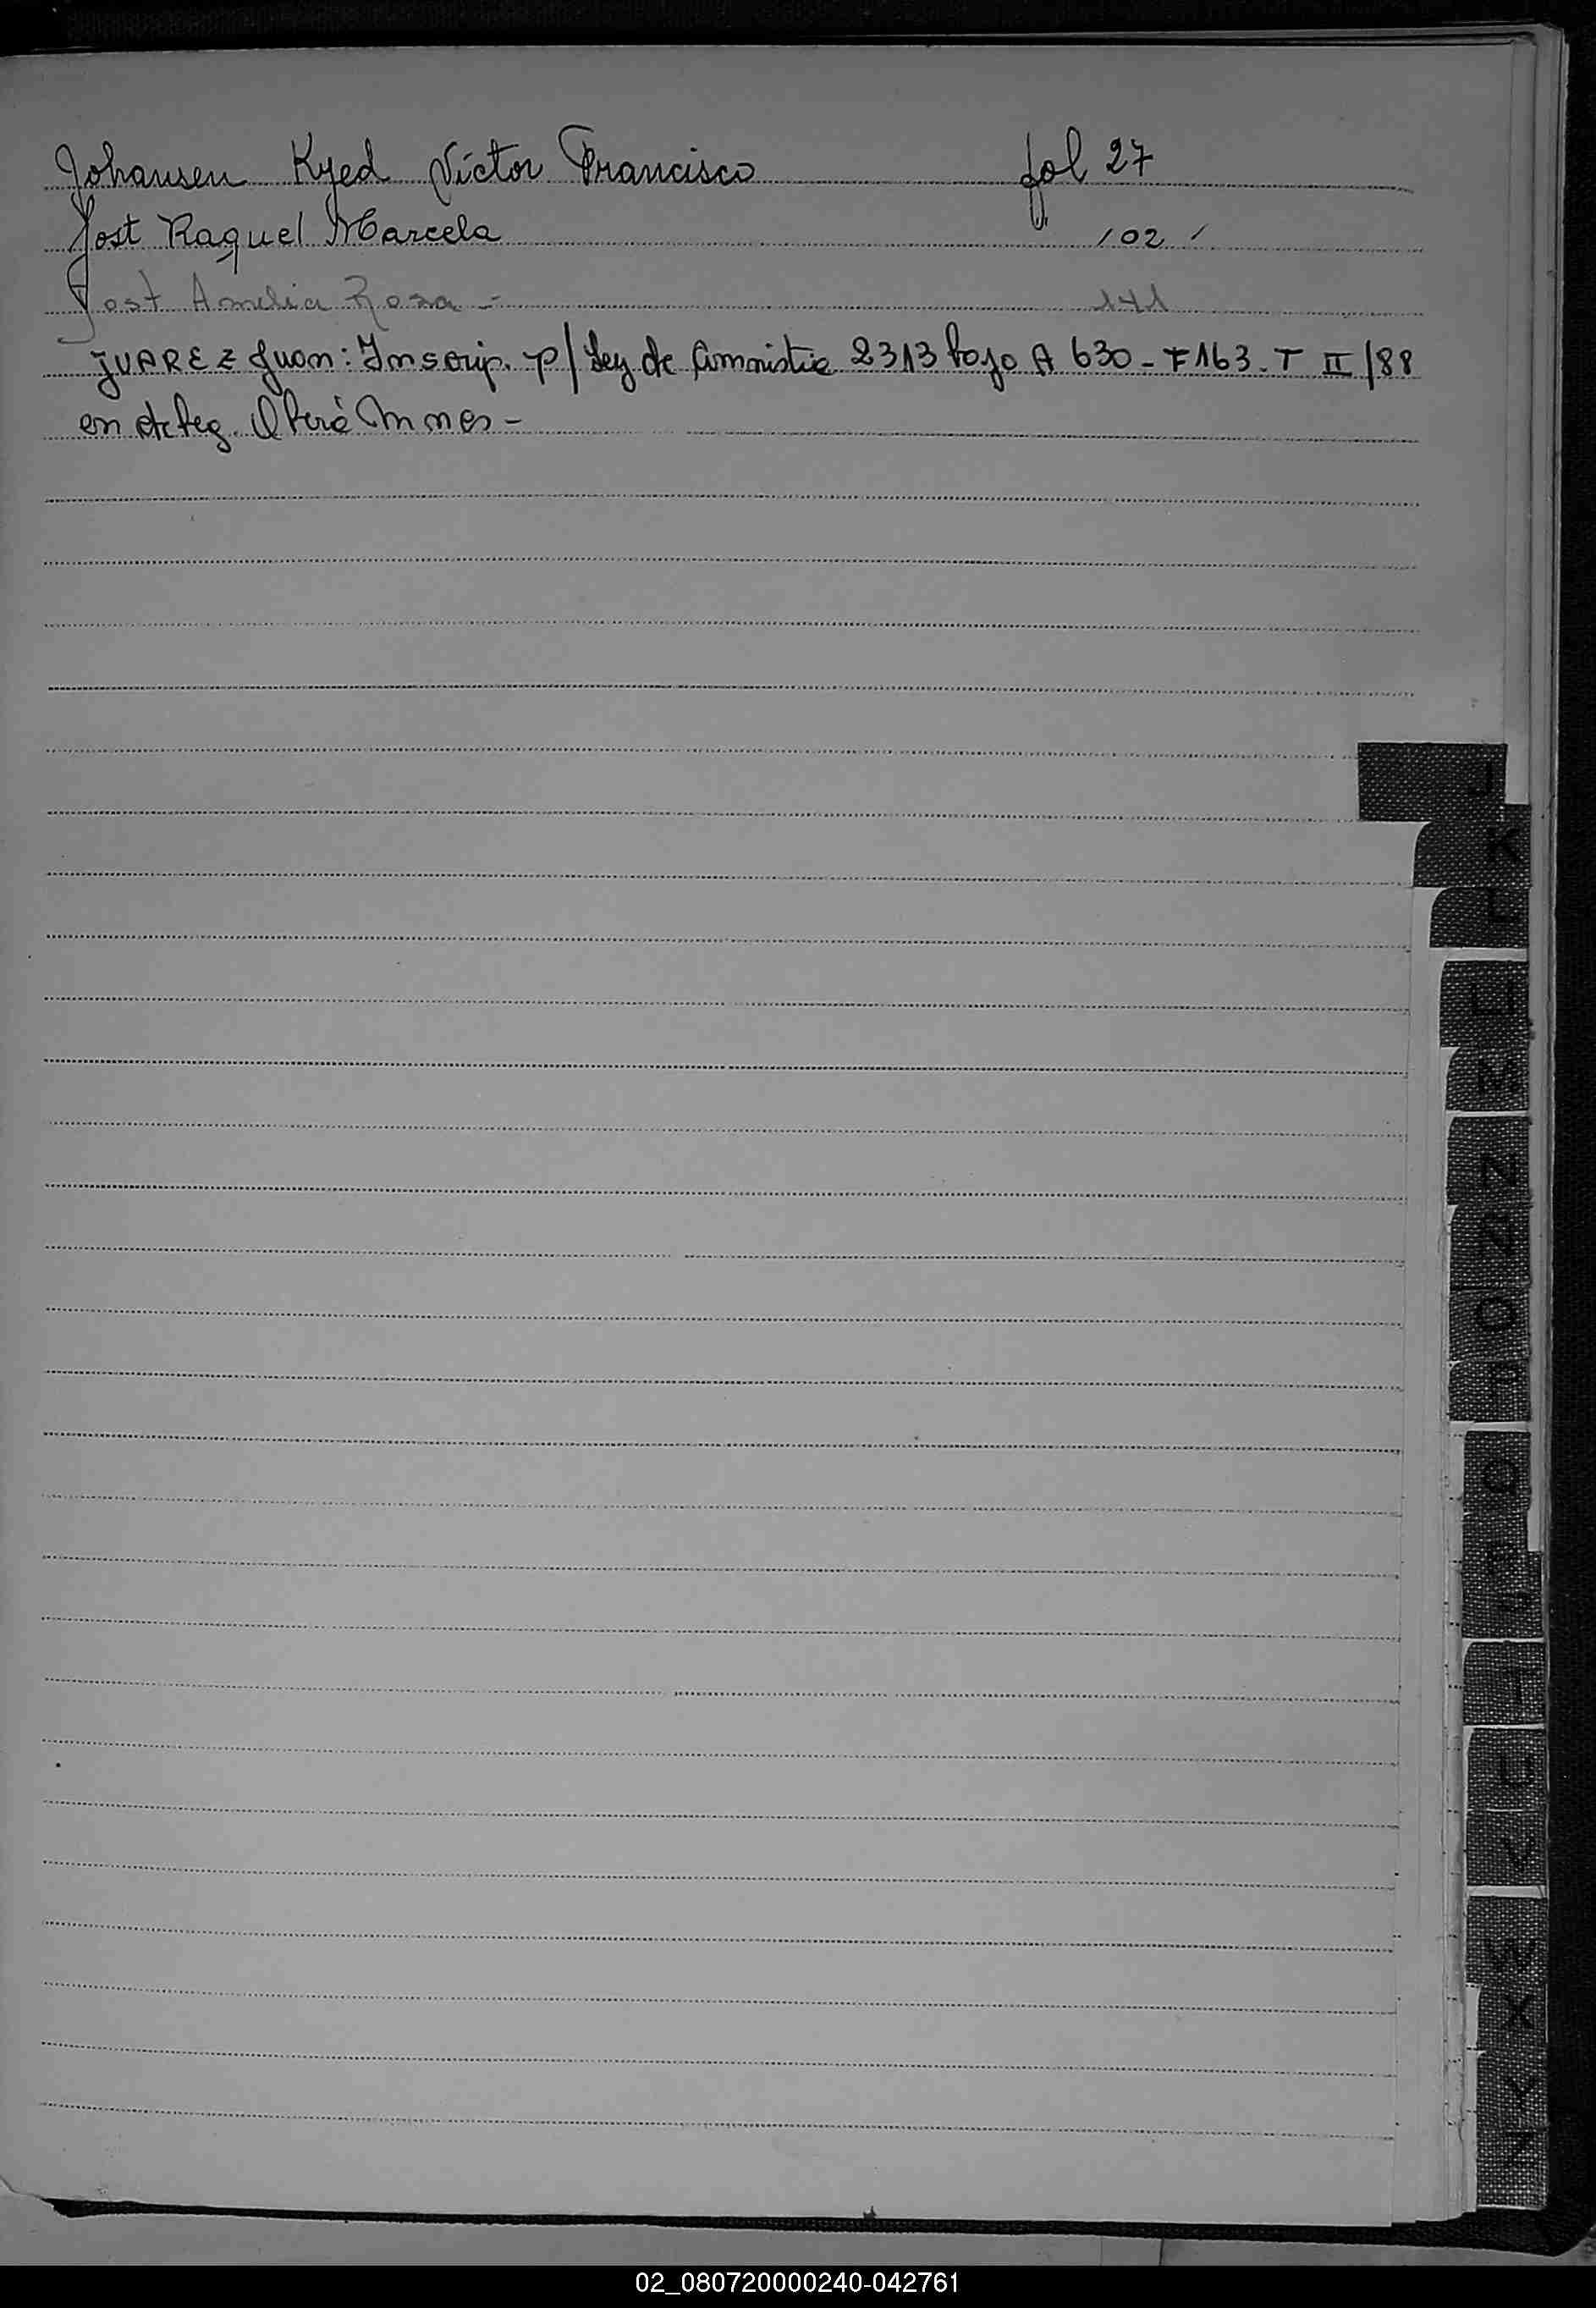 Johansen Kyed Víctor Francisco fol 27
Jost Raquel Marcela 102
Jost Amelia Rosa - 141
JUAREZ Juan: Inscrip. p/ Ley de Amnistia 2313 bajo A 630 - F 163 - T II/88
en deleg. Oberá Mnes -
J
K
L
LL
M
N
Ñ
O
P
Q
R
S
T
U
V
W
X
Y
Z
02_080720000240-042761